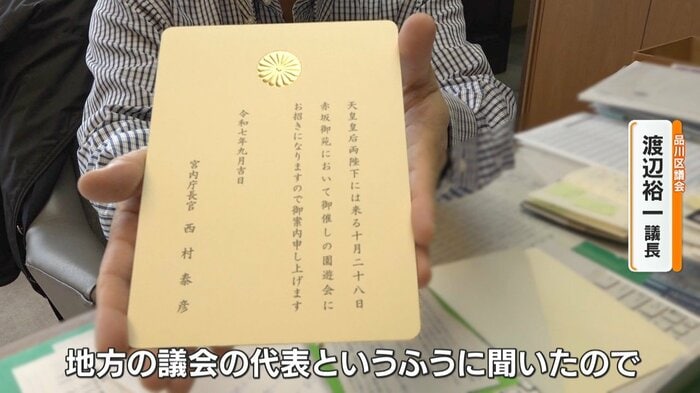 天皇皇后両陛下には来る十月二十八日
赤坂御苑において御催しの園遊会に
お招きになりますので御案内申し上げます
令和七年九月吉日
宮内庁長官 西村泰彦
品川区議会
渡辺裕一 議長
地方の議会の代表というふうに聞いたので